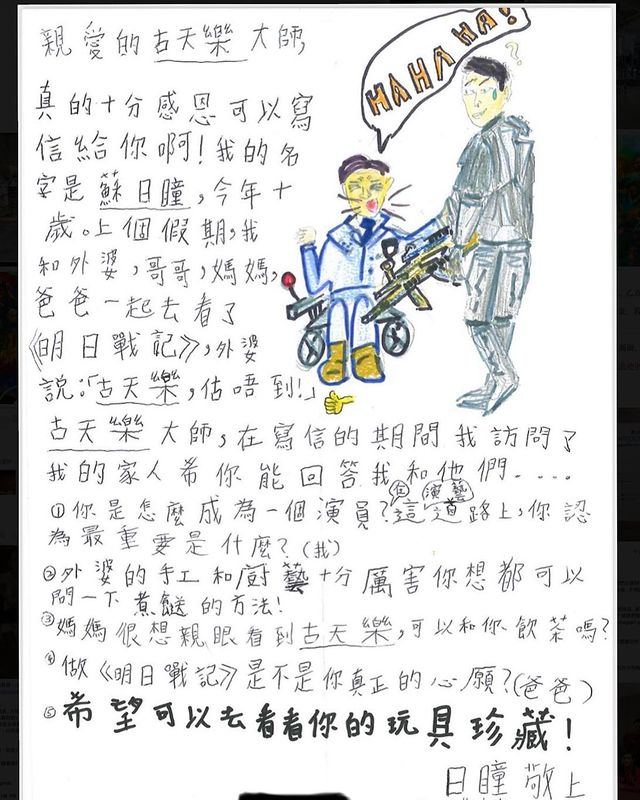 親愛的古天樂大師,
HAHAHA!
?
真的十分感恩可以寫
信給你啊!我的名
字是蘇日瞳,今年十
歲。上個假期,我
和外婆,哥哥,媽媽,
爸爸一起去看了
《明日戰記》,外婆
說:「古天樂,估唔到!」
古天樂大師,在寫信的期間我訪問了
我的家人希你能回答我和他們....
①你是怎麼成為一個演員?在這演藝道路上,你認
為最重要是什麼?(我)
②外婆的手工和廚藝十分厲害你想都可以
問一下煮餸的方法!
③媽媽很想親眼看到古天樂,可以和你飲茶嗎?
④做《明日戰記》是不是你真正的心願?(爸爸)
⑤希望可以去看看你的玩具珍藏!
日瞳敬上